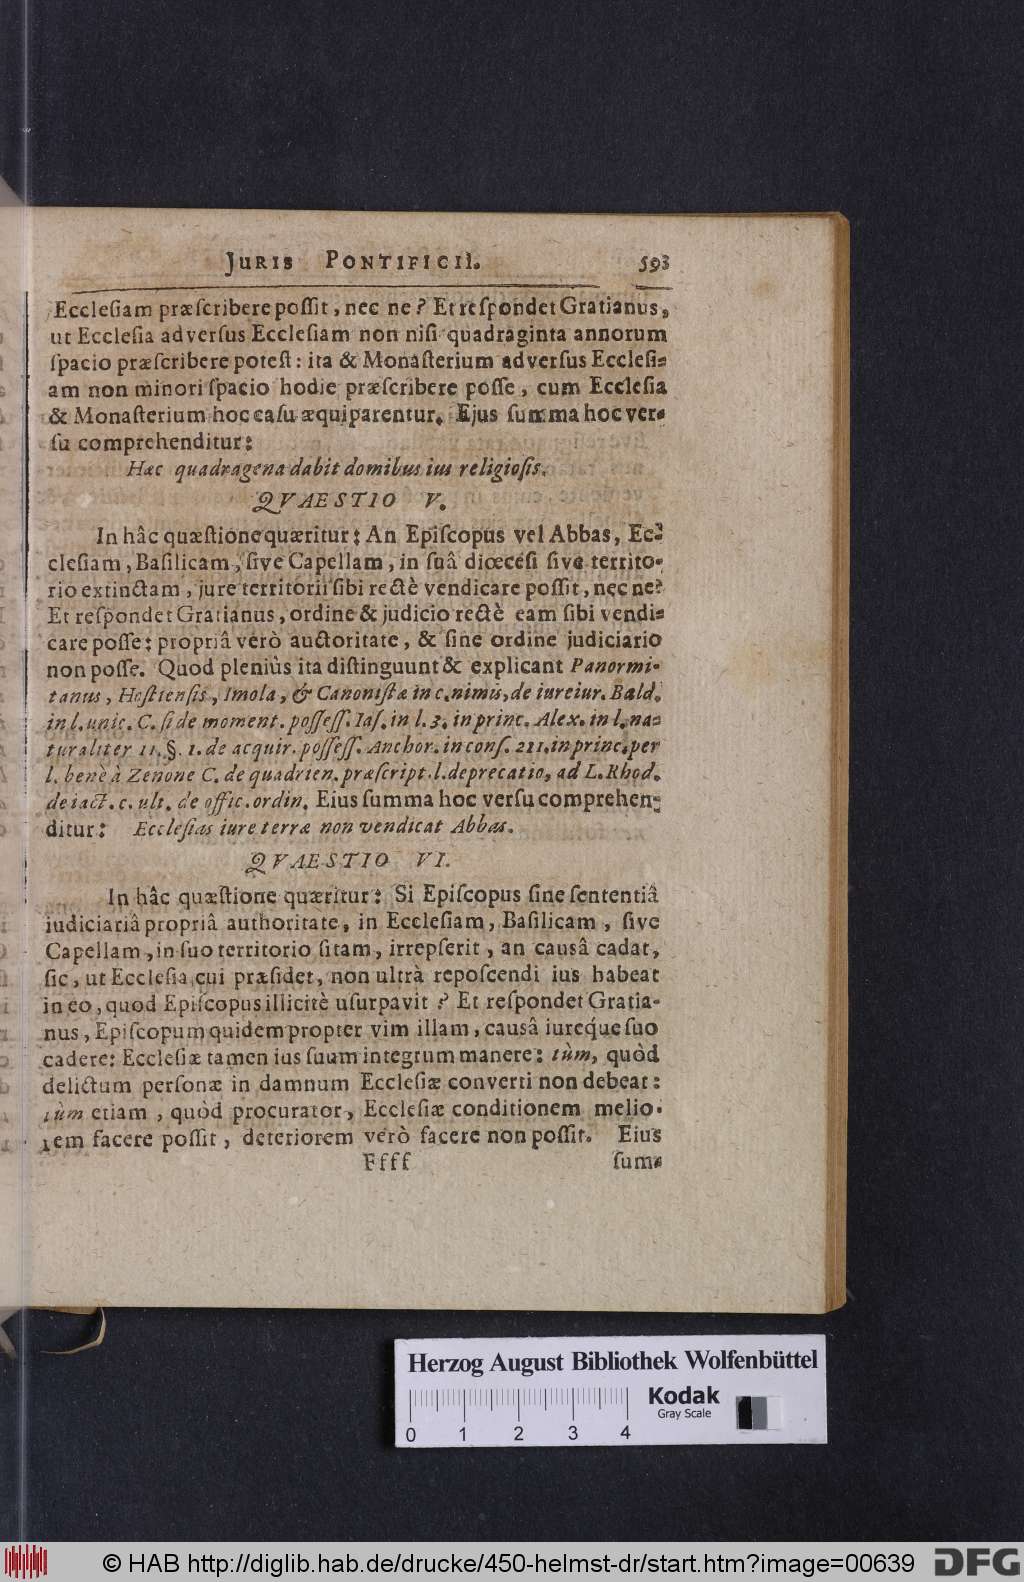 JURIS PONTIFICII. 593
Eccleſiam præſcribere poſſit, nec ne? Et reſpondet Gratianus,
ut Eccleſia adverſus Eccleſiam non niſi quadraginta annorum
ſpacio præſcribere poteſt: ita & Monaſterium adverſus Eccleſi-
am non minori ſpacio hodie præſcribere poſſe, cum Eccleſia
& Monaſterium hoc caſu æquiparentur. Ejus ſumma hoc ver-
ſu comprehenditur:
Hæc quadragena dabit domibus ius religioſis.
QVAESTIO V.
In hâc quæſtione quæritur: An Epiſcopus vel Abbas, Ec-
cleſiam, Baſilicam, ſive Capellam, in ſuâ diœceſi ſive territo-
rio extinctam, jure territorii ſibi rectè vendicare poſſit, nec ne?
Et reſpondet Gratianus, ordine & judicio rectè eam ſibi vendi-
care poſſe: propriâ verò auctoritate, & ſine ordine judiciario
non poſſe. Quod pleniùs ita diſtinguunt & explicant Panormi-
tanus, Hoſtienſis, Imola, & Canoniſtæ in c. nimis, de iureiur. Bald.
in l. unic. C. ſi de moment. poſſeſſ. Iaſ. in l. 3. in princ. Alex. in l. na-
turaliter 11. §. 1. de acquir. poſſeſſ. Anchor. in conſ. 211. in princ. per
l. benè à Zenone C. de quadrien. præſcript. l. deprecatio, ad L. Rhod.
de iact. c. ult. de offic. ordin. Eius ſumma hoc verſu comprehen-
ditur: Eccleſias iure terræ non vendicat Abbas.
QVAESTIO VI.
In hâc quæſtione quæritur: Si Epiſcopus ſine ſententiâ
iudiciariâ propriâ authoritate, in Eccleſiam, Baſilicam, ſive
Capellam, in ſuo territorio ſitam, irrepſerit, an causâ cadat,
ſic, ut Eccleſia cui præſidet, non ultrà repoſcendi ius habeat
in eo, quod Epiſcopus illicitè uſurpavit? Et reſpondet Gratia-
nus, Epiſcopum quidem propter vim illam, causâ iureq́ue ſuo
cadere: Eccleſiæ tamen ius ſuum integrum manere: tùm, quòd
delictum perſonæ in damnum Eccleſiæ converti non debeat:
tùm etiam, quòd procurator, Eccleſiæ conditionem melio-
rem facere poſſit, deteriorem verò facere non poſſit. Eius
Ffff ſum-
Herzog August Bibliothek Wolfenbüttel
Kodak
Gray Scale
0 1 2 3 4
© HAB http://diglib.hab.de/drucke/450-helmst-dr/start.htm?image=00639 DFG